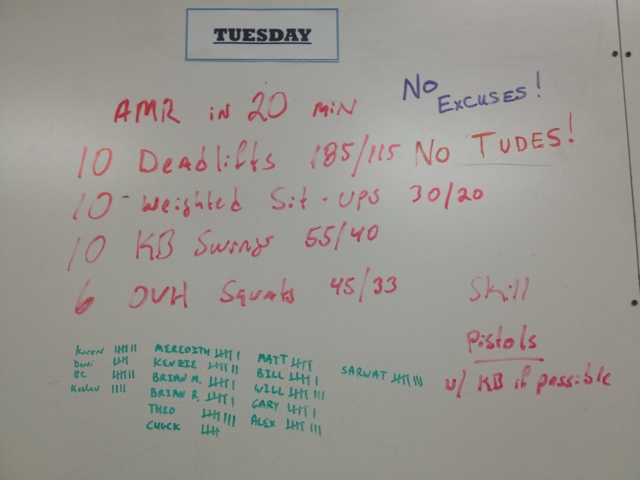 TUESDAY
AMR in 20 min
No Excuses!
10 Deadlifts 185/115
No TUDES!
10 - Weighted Sit-ups 30/20
10 KB Swings 55/40
6 OVH Squats 45/33
Skill
Pistols
w/ KB if possible
Karen
Doni
BC
Keshav
MEREDITH
KENZIE
BRIAN M.
BRIAN R.
THEO
CHUCK
MATT
BILL
WILL
GARY
ALEX
SARWAT